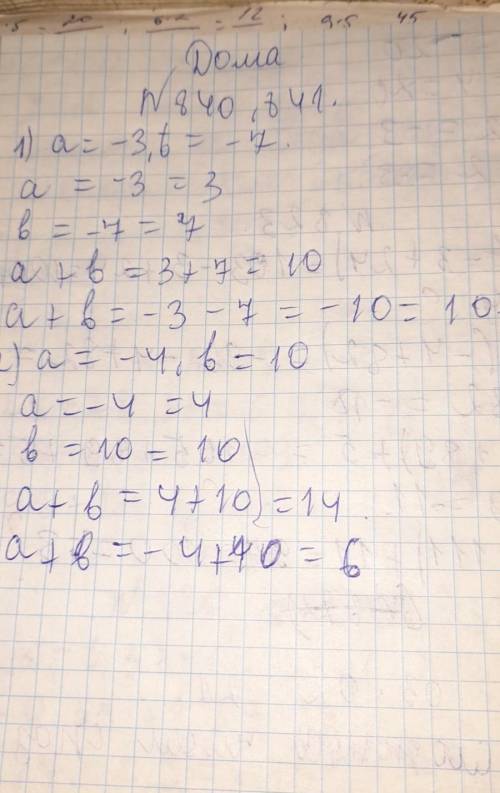 Дома
N 840, 841.
1) a = -3, b = -7.
a = -3 = 3
b = -7 = 7
a + b = 3 + 7 = 10
a + b = -3 - 7 = -10 = 10
2) a = -4, b = 10
a = -4 = 4
b = 10 = 10
a + b = 4 + 10 = 14
a + b = -4 + 10 = 6